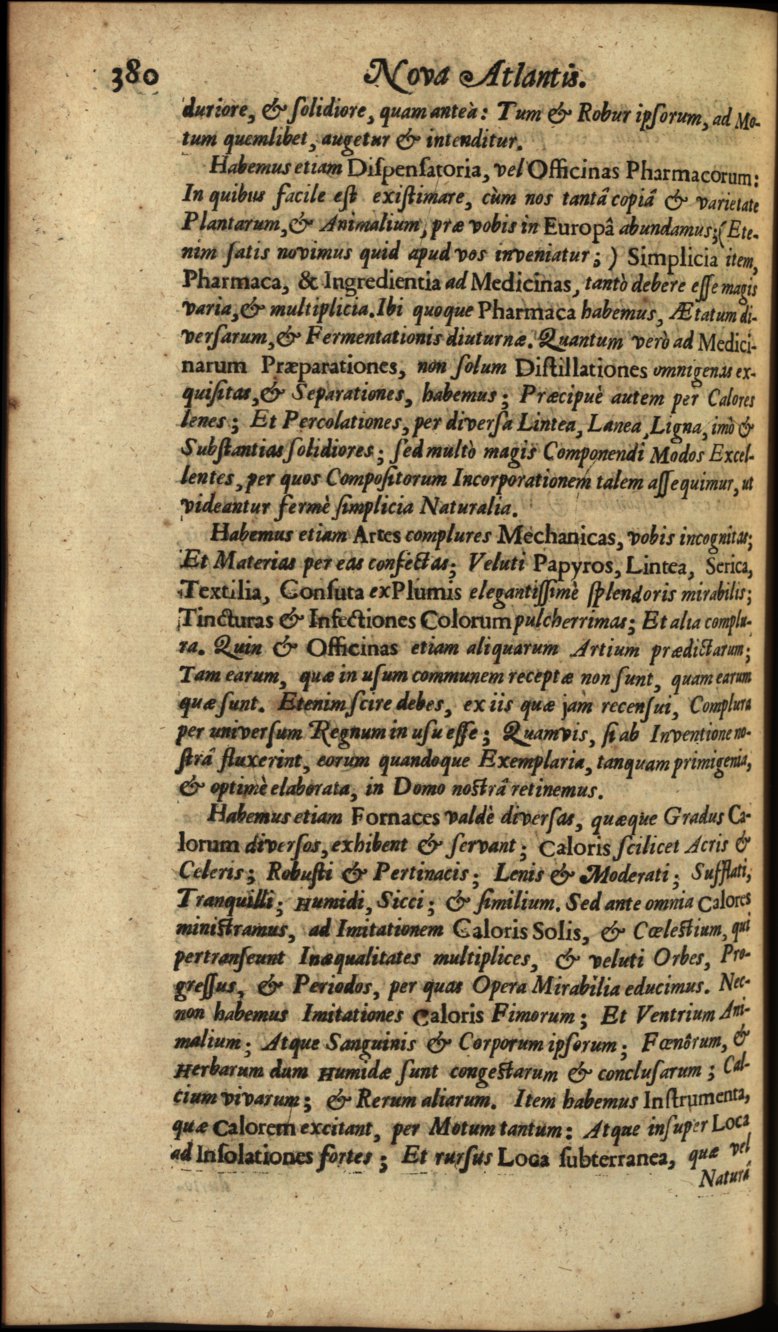 380 Nova Atlantis.
duriore, & solidiore, quam anteà: Tum & Robur ipsorum, ad Mo-
tum quemlibet, augetur & intenditur.
Habemus etiam Dispensatoria, vel Officinas Pharmacorum:
In quibus facile est existimare, cùm nos tantâ copiâ & varietate
Plantarum, & Animalium, præ vobis in Europâ abundamus; (Ete-
nim satis novimus quid apud vos inveniatur; ) Simplicia item,
Pharmaca, & Ingredientia ad Medicinas, tantò debere esse magis
varia, & multiplicia. Ibi quoque Pharmaca habemus, Ætatum di-
versarum, & Fermentationis diuturnæ. Quantum verò ad Medici-
narum Præparationes, non solum Distillationes omnigenas ex-
quisitas, & Separationes, habemus; Præcipuè autem per Calores
lenes; Et Percolationes, per diversa Lintea, Lanea, Ligna, imò &
Substantias solidiores; sed multò magis Componendi Modos Excel-
lentes, per quos Compositorum Incorporationem talem assequimur, ut
videantur fermè simplicia Naturalia.
Habemus etiam Artes complures Mechanicas, vobis incognitas;
Et Materias per eas confectas; Veluti Papyros, Lintea, Serica,
Textilia, Consuta ex Plumis elegantissimè splendoris mirabilis;
Tincturas & Infectiones Colorum pulcherrimas; Et alia complu-
ra. Quin & Officinas etiam aliquarum Artium prædictarum;
Tam earum, quæ in usum communem receptæ non sunt, quam earum
quæ sunt. Etenim scire debes, ex iis quæ jam recensui, Complura
per universum Regnum in usu esse; Quamvis, si ab Inventione no-
strâ fluxerint, eorum quandoque Exemplaria, tanquam primigenia,
& optimè elaborata, in Domo nostrâ retinemus.
Habemus etiam Fornaces valdè diversas, quæque Gradus Ca-
lorum diversos, exhibent & servant; Caloris scilicet Acris &
Celeris; Robusti & Pertinacis; Lenis & Moderati; Sufflati,
Tranquilli; Humidi, Sicci; & similium. Sed ante omnia Calores
ministramus, ad Imitationem Caloris Solis, & Cœlestium, qui
pertranseunt Inæqualitates multiplices, & veluti Orbes, Pro-
gressus, & Periodos, per quas Opera Mirabilia educimus. Nec-
non habemus Imitationes Caloris Fimorum; Et Ventrium Ani-
malium; Atque Sanguinis & Corporum ipsorum; Fœnorum, &
Herbarum dum Humidæ sunt congestarum & conclusarum; Cal-
cium vivarum; & Rerum aliarum. Item habemus Instrumenta,
quæ Calorem excitant, per Motum tantum: Atque insuper Loca
ad Insolationes fortes; Et rursus Loca subterranea, quæ vel
Naturâ